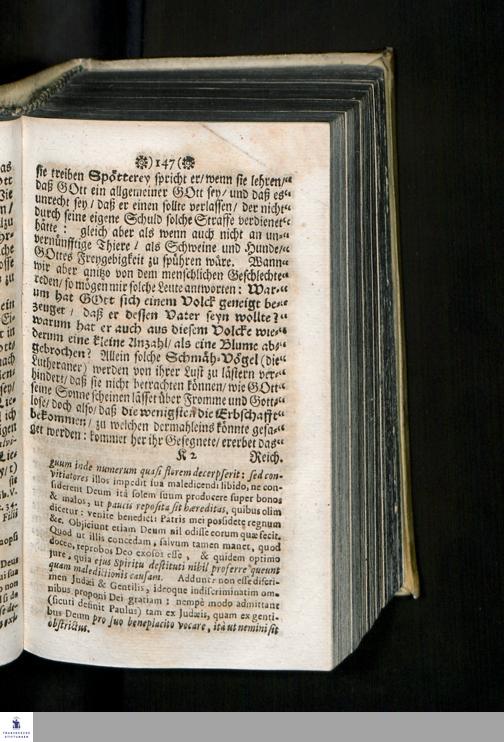 )147(
sie treiben Spötterey spricht er/ wenn sie lehren/“
daß GOtt ein allgemeiner GOtt sey/ und daß es“
unrecht sey/ daß er einen sollte verlassen/ der nicht“
durch seine eigene Schuld solche Straffe verdienet“
hätte: gleich aber als wenn auch nicht an un-“
vernünfftige Thiere/ als Schweine und Hunde/“
GOttes Freygebigkeit zu spühren wäre. Wann“
wir aber anitzo von dem menschlichen Geschlechte“
reden/ so mögen mir solche Leute antworten: War-“
um hat GOtt sich einem Volck geneigt be-“
zeuget/ daß er dessen Vater seyn wollte?“
warum hat er auch aus diesem Volcke wie-“
derum eine kleine Anzahl/ als eine Blume ab-“
gebrochen? Allein solche Schmäh-Vögel (die“
Lutheraner) werden von ihrer Lust zu lästern ver-“
hindert/ daß sie nicht betrachten können/ wie GOtt“
seine Sonne scheinen lässet über Fromme und Gott-“
lose/ doch also/ daß die wenigsten die Erbschafft“
bekommen/ zu welchen dermahleins könnte gesa-“
get werden: kommet her ihr Gesegnete/ ererbet das“
K 2 Reich.
guum inde numerum quasi florem decerpserit: sed con-
vitiatores illos impedit sua maledicendi libido, ne con-
siderent Deum ita solem suum producere super bonos
& malos, ut paucis reposita sit hæreditas, quibus olim
dicetur: venite benedicti Patris mei possidete regnum
&c. Objiciunt etiam Deum nil odisse eorum quæ fecit.
Quod ut illis concedam, salvum tamen manet, quod
doceo, reprobos Deo exosos esse, & quidem optimo
jure, quia ejus Spiritu destituti nihil proferre queunt
quam maledictionis causam. Adducunt non esse discri-
men Judæi & Gentilis, ideoque indiscriminatim om-
nibus proponi Dei gratiam: nempe modo admittant
(sicuti definit Paulus) tam ex Judæis, quam ex genti-
bus Deum pro suo beneplacito vocare, ità ut nemini sit
obstrictus.
FRANCKESCHE
STIFTUNGEN